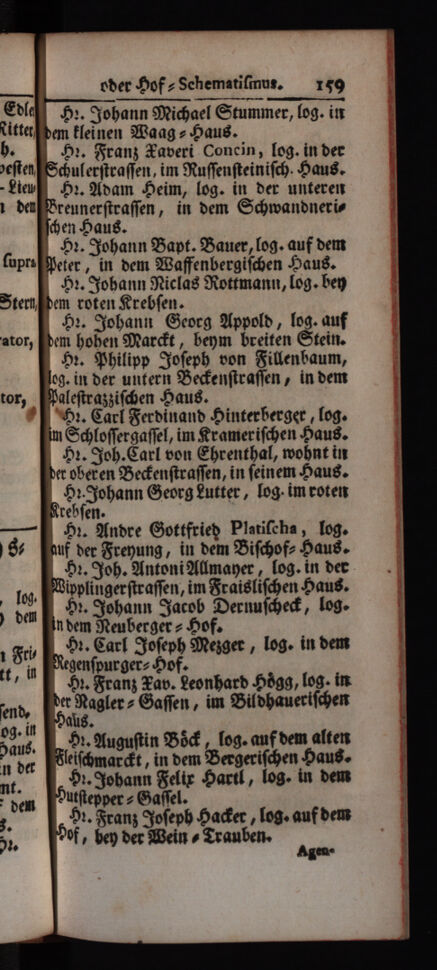 oder Hof-Schematismus. 159
Hr. Johann Michael Stummer, log. in
dem kleinen Waag-Haus.
Hr. Franz Xaveri Concin, log. in der
Schulerstrassen, im Russensteinisch. Haus.
Hr. Adam Heim, log. in der unteren
Breunerstrassen, in dem Schwandneri-
schen Haus.
Hr. Johann Bapt. Bauer, log. auf dem
Peter, in dem Waffenbergischen Haus.
Hr. Johann Niclas Rottmann, log. bey
dem roten Krebsen.
Hr. Johann Georg Appold, log. auf
dem hohen Marckt, beym breiten Stein.
Hr. Philipp Joseph von Fillenbaum,
log. in der untern Beckenstrassen, in dem
Palestrazzischen Haus.
Hr. Carl Ferdinand Hinterberger, log.
im Schlossergassel, im Kramerischen Haus.
Hr. Joh. Carl von Ehrenthal, wohnt in
der oberen Beckenstrassen, in seinem Haus.
Hr. Johann Georg Lutter, log. im roten
Krebsen.
Hr. Andre Gottfried Platischa, log.
auf der Freyung, in dem Bischof-Haus.
Hr. Joh. Antoni Allmayer, log. in der
Wipplingerstrassen, im Fraislischen Haus.
Hr. Johann Jacob Dernuscheck, log.
in dem Neuberger-Hof.
Hr. Carl Joseph Mezger, log. in dem
Regenspurger-Hof.
Hr. Franz Xav. Leonhard Högg, log. in
der Nagler-Gassen, im Bildhauerischen
Haus.
Hr. Augustin Böck, log. auf dem alten
Fleischmarckt, in dem Bergerischen Haus.
Hr. Johann Felix Hartl, log. in dem
Hutstepper-Gassel.
Hr. Franz Joseph Hacker, log. auf dem
Hof, bey der Wein-Trauben.
Agen-